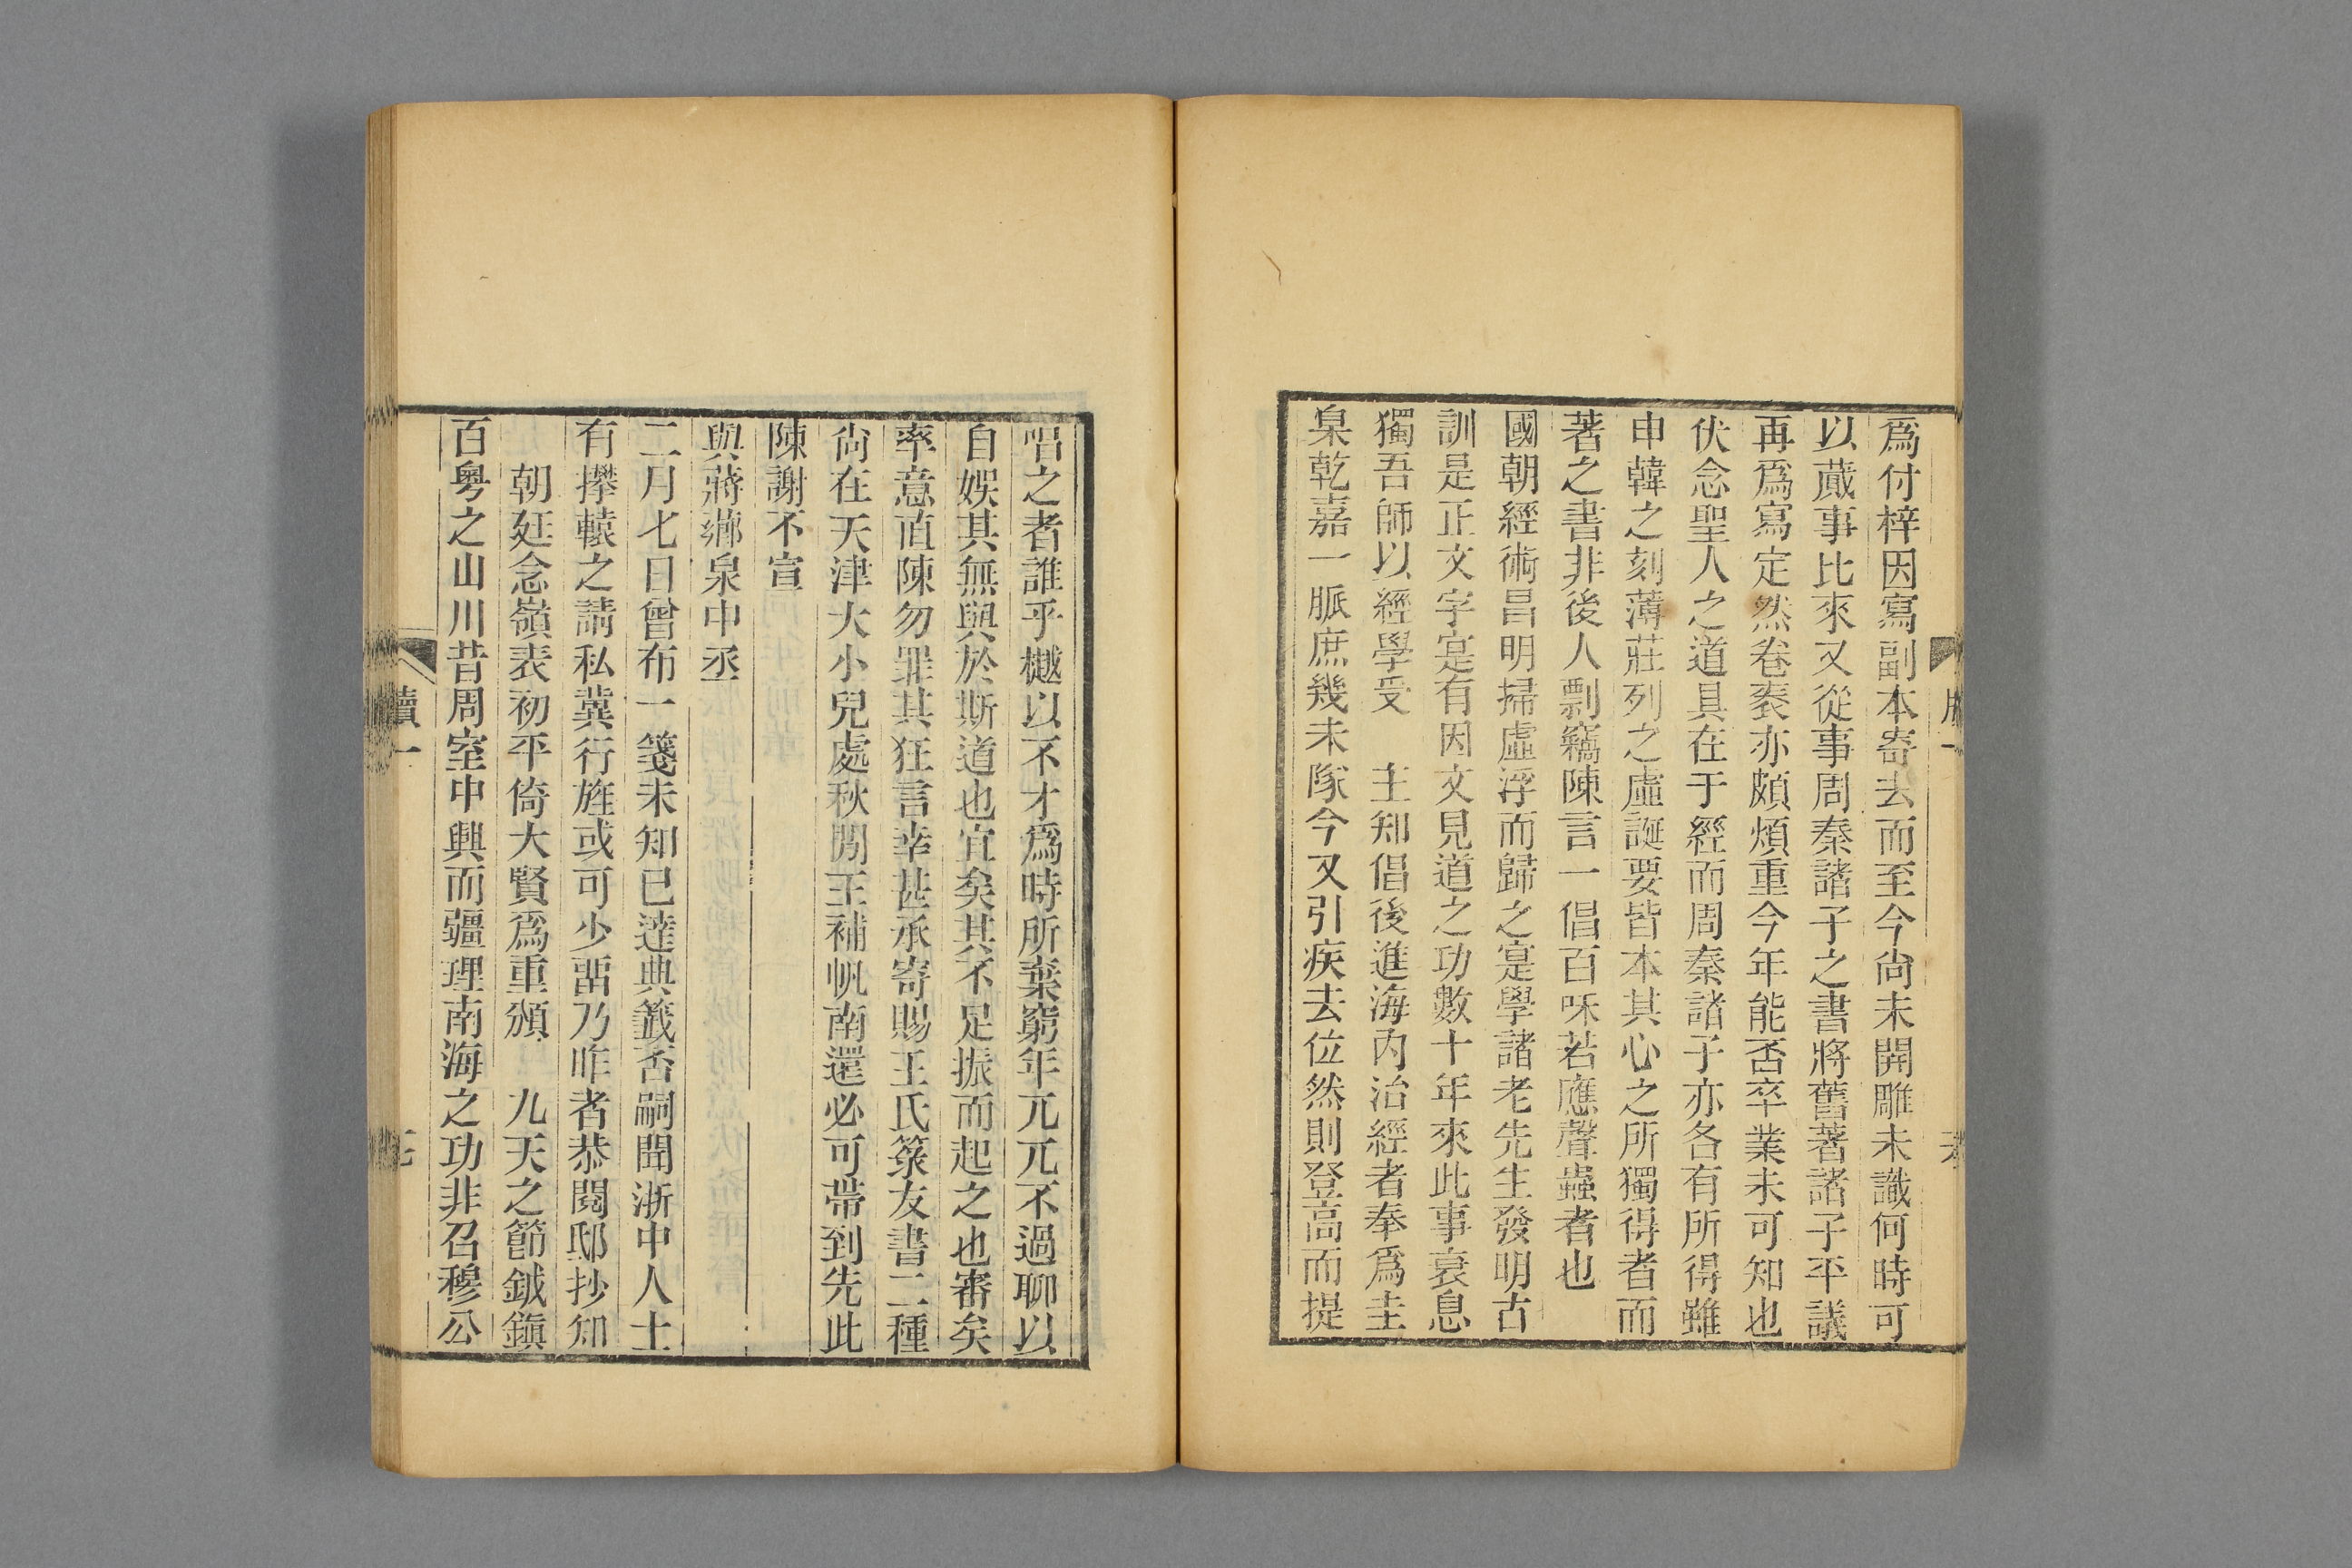 爲付梓因寫副本寄去而至今尙未開雕未識何時可
以蕆事比來又從事周秦諸子之書將舊著諸子平議
再爲寫定然卷袠亦頗煩重今年能否卒業未可知也
伏念聖人之道具在于經而周秦諸子亦各有所得雖
申韓之刻薄莊列之虛誕要皆本其心之所獨得者而
著之書非後人剽竊陳言一倡百咊若應聲蟲者也
國朝經術昌明掃虛浮而歸之寔學諸老先生發明古
訓是正文字寔有因文見道之功數十年來此事衰息
獨吾師以經學受 主知倡後進海內治經者奉爲圭
臬乾嘉一脈庶幾未隊今又引疾去位然則登高而提
唱之者誰乎樾以不才爲時所棄窮年兀兀不過聊以
自娛其無與於斯道也宜矣其不足振而起之也審矣
率意直陳勿罪其狂言幸甚承寄賜王氏箓友書二種
尙在天津大小兒處秋閒王補帆南還必可帶到先此
陳謝不宣
與蔣薌泉中丞
二月七日曾布一箋未知已達典籤否嗣聞浙中人士
有攀轅之請私冀行旌或可少畱乃昨者恭閱邸抄知
朝廷念嶺表初平倚大賢爲重頒 九天之節鉞鎭
百粵之山川昔周室中興而疆理南海之功非召穆公
牘一